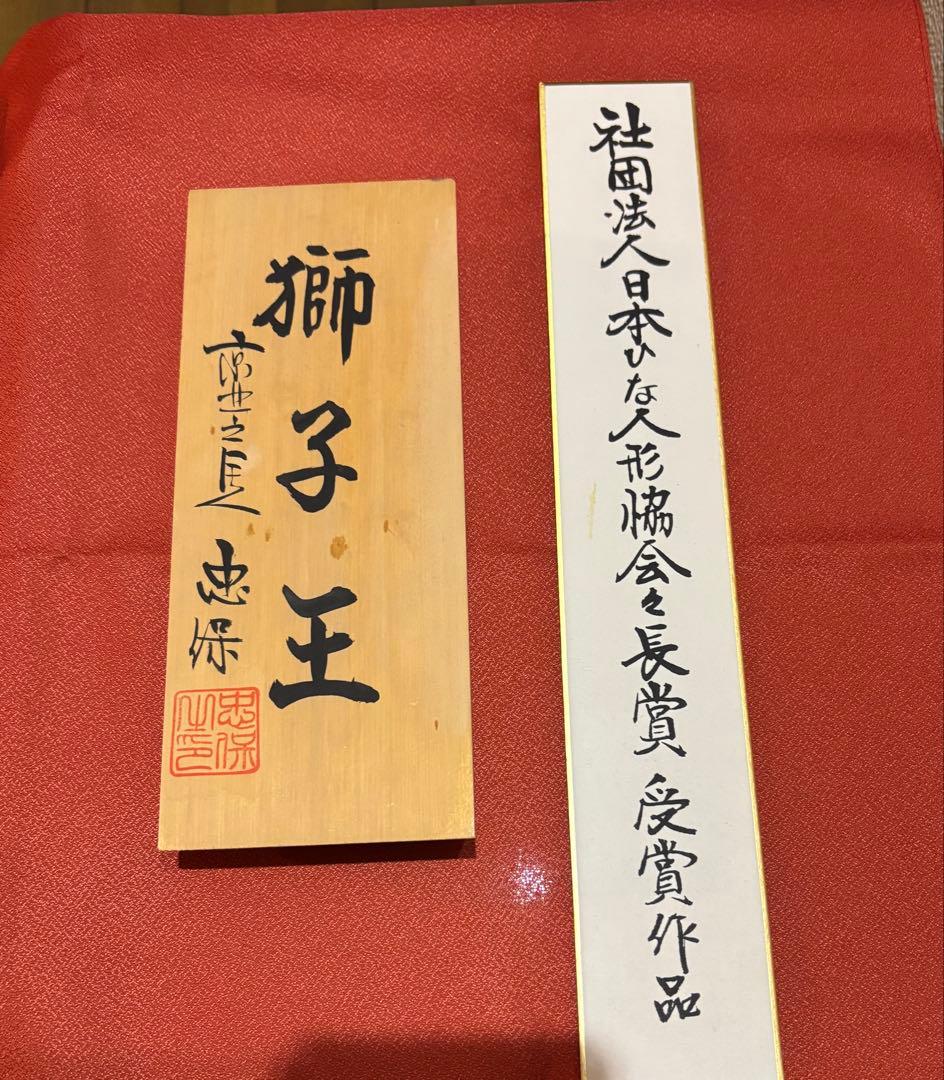 社団法人日本ひな人形協会々長賞 受賞作品
獅子王
忠保
忠保
之印